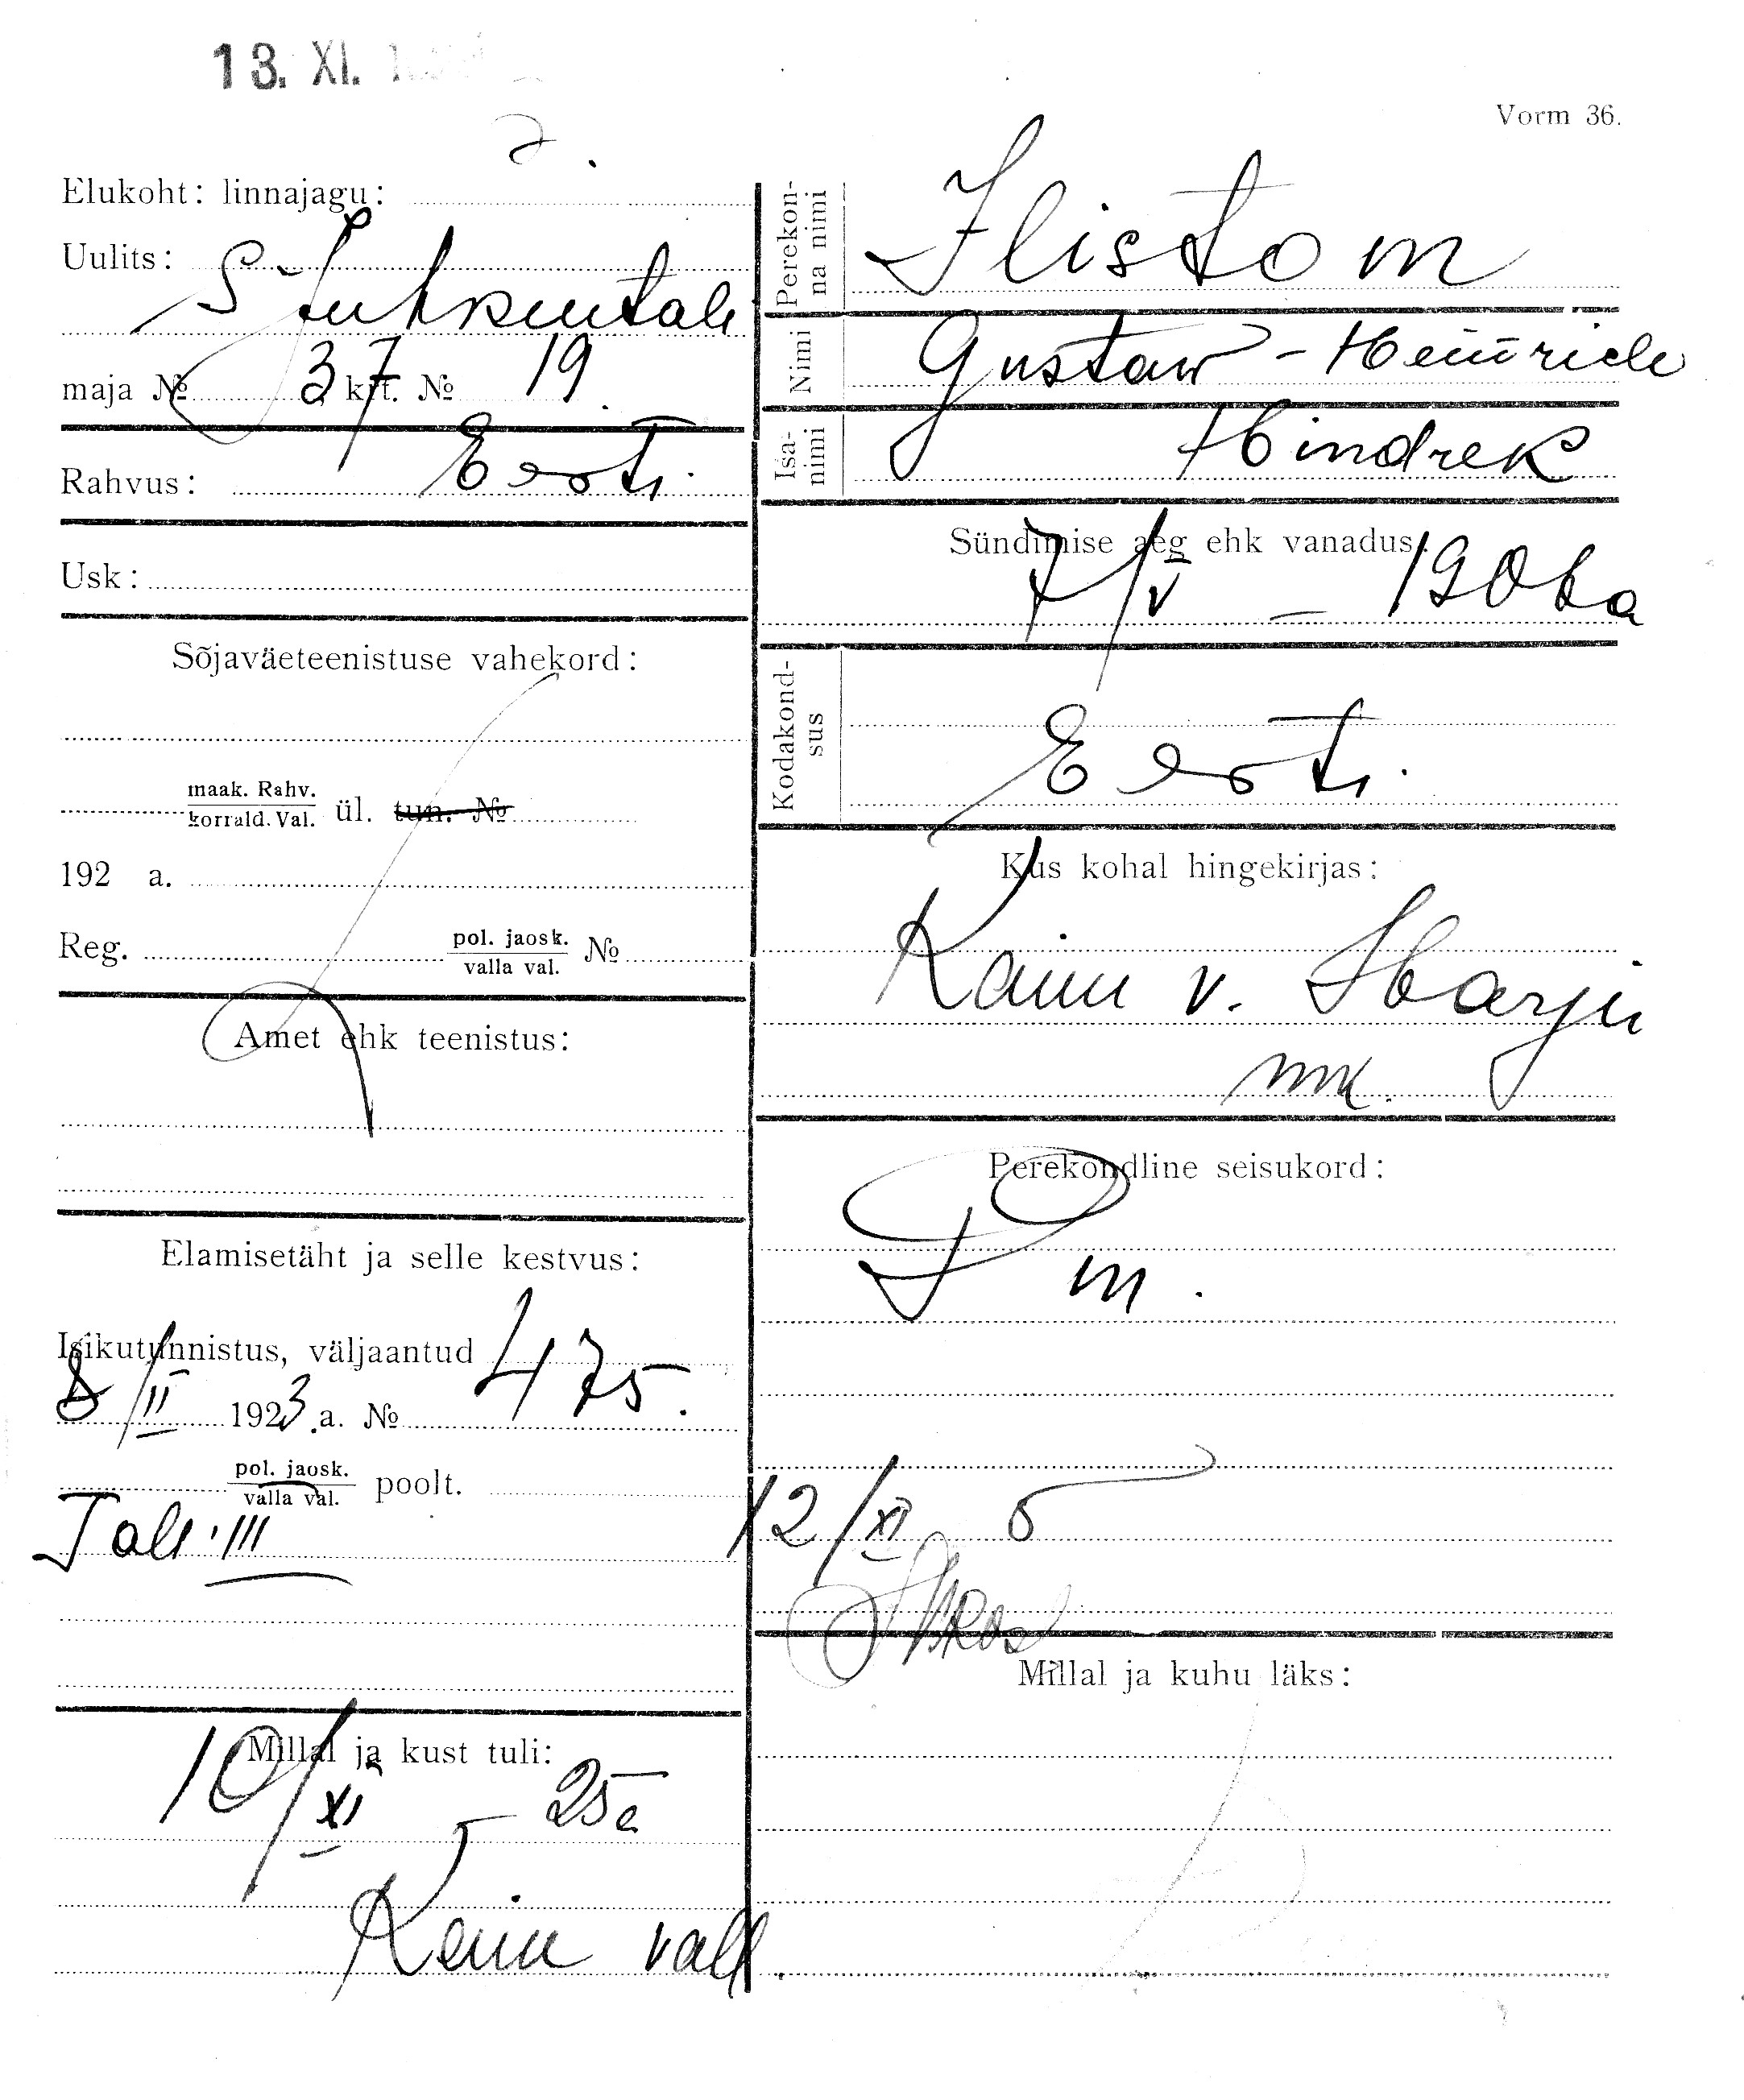 13. XI.
Vorm 36.
Elukoht: linnajagu:
Uulits: S. Juhkentali
maja № 37 krt. № 19
Rahvus: Eesti.
Usk:
Sõjaväeteenistuse vahekord:
maak. Rahv.
korrald. Val. ül. tun. №
192 a.
Reg. pol. jaosk. №
valla val.
Amet ehk teenistus:
Elamisetäht ja selle kestvus:
Isikutunnistus, väljaantud
8/II 1923.a. № 475.
pol. jaosk.
valla val. poolt.
Tall. III
Millal ja kust tuli:
10/XI 25 a
vall.
Perekonna nimi
Nimi Gustav-Heinrich
Isanimi Hindrek
Sündimise aeg ehk vanadus:
7/V – 1906 a
Kodakondsus
Eesti.
Kus kohal hingekirjas:
v. Harju
mk.
Perekondline seisukord:
m.
12/XI
Millal ja kuhu läks: